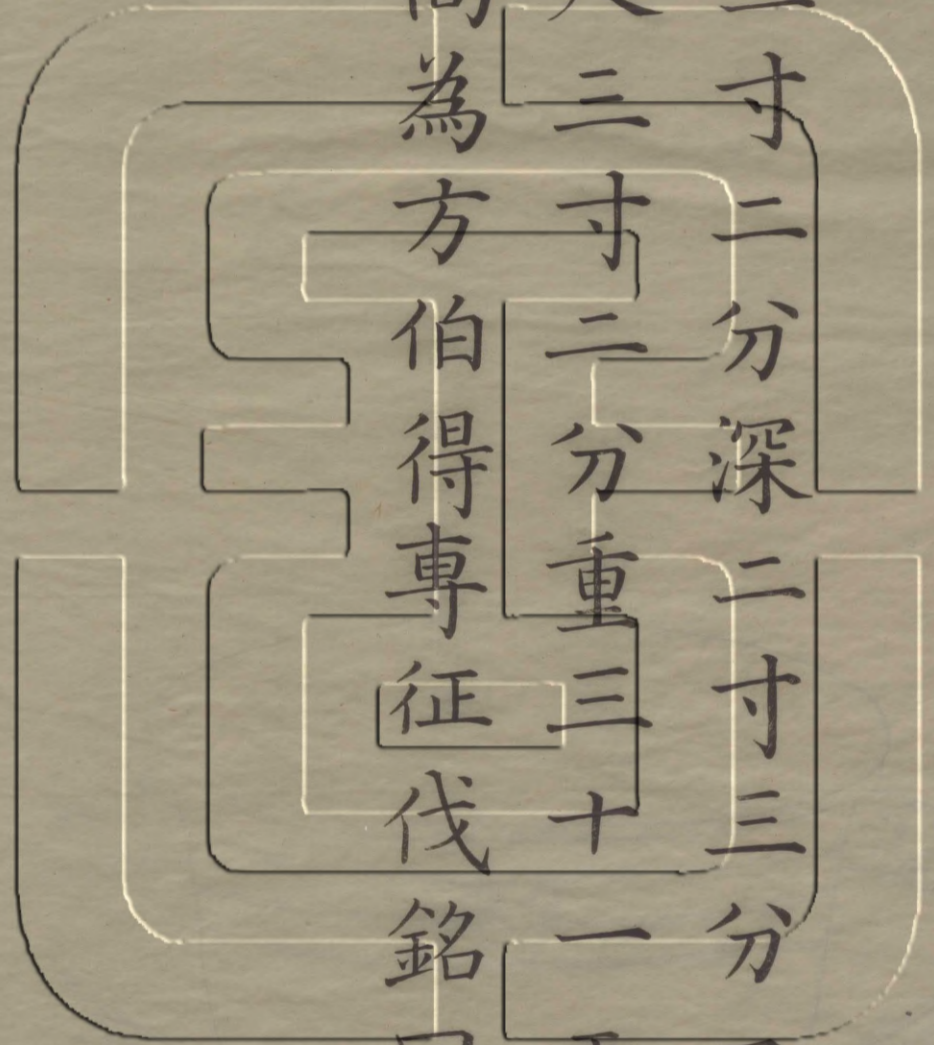 寸二分深二寸三分
三寸二分重三十一
為方伯得專征伐銘